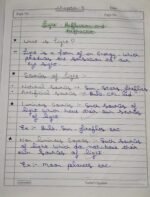 Chapter 3
Light Reflection and
Refraction
What is Light?
Light is a form of an Energy which
produces the sensation of our
Eye sight.
Sources of Light
Natural Source :- Sun, Stars, fireflies
Light
Luminous Sources :- Such Sources
of Light which have their own
Source of Light.
Ex :- Bulb, Sun, fireflies etc.
Non Luminous Sources :- Such Sources
of Light which do not have their
own Sources of Light
Ex :- Moon, planets etc.